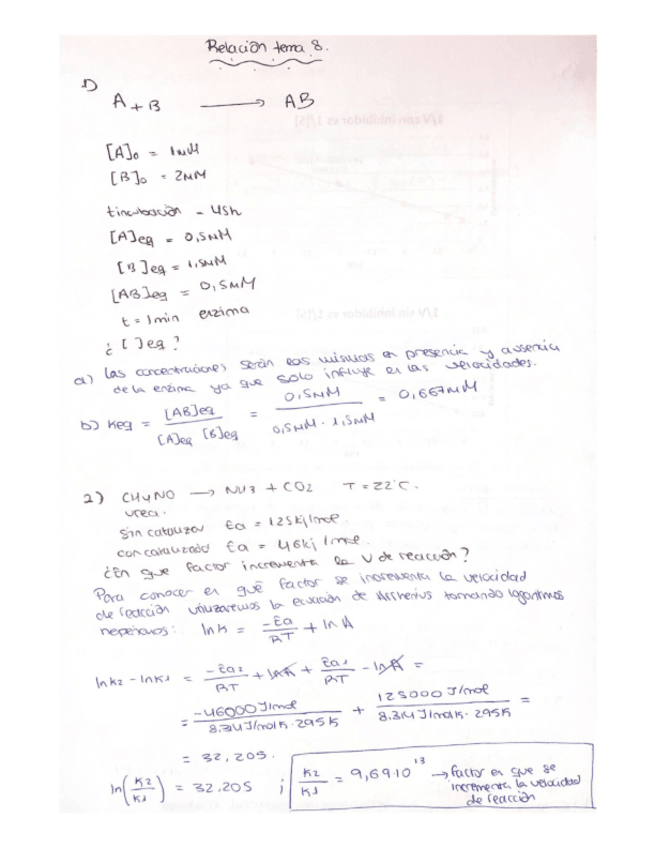 Relación tema 8.
1)
A + B ⟶ AB
[A]₀ = 1μM
[B]₀ = 2μM
tincubación = 48h
[A]eq = 0,5μM
[B]eq = 1,5μM
[AB]eq = 0,5μM
t = 1min enzima
¿ [ ]eq ?
a) las concentraciones serán las mismas en presencia y ausencia
de la enzima ya que solo influye en las velocidades.
b) Keq = [AB]eq / [A]eq [B]eq = 0,5μM / 0,5μM · 1,5μM = 0,667μM
2) CH4NO ⟶ NH3 + CO2 T = 22°C.
urea.
sin catalizar Ea = 125kj/mol
con catalizado Ea = 46kj/mol.
¿En que factor incrementa la V de reacción?
Para conocer en qué factor se incrementa la velocidad
de reacción utilizaremos la ecuación de Arrhenius tomando logaritmos
neperianos: lnK = -Ea/RT + ln A
lnK2 - lnK1 = -Ea2/RT + lnA + Ea1/RT - lnA =
= -46000J/mol / 8.314J/molK·295K + 125000J/mol / 8.314J/molK·295K =
= 32,205.
ln(K2/K1) = 32.205 ; K2/K1 = 9,69·10¹³ → factor en que se
incrementa la velocidad
de reacción
1/V con inhibidor vs 1/[S]
1/V sin inhibidor vs 1/[S]